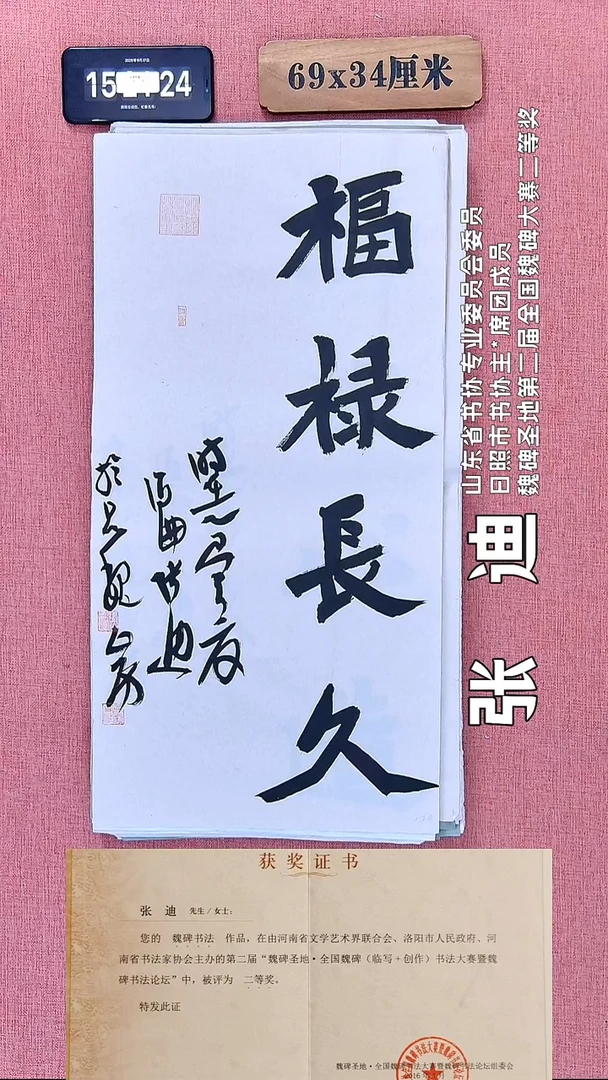 69x34厘米
福禄長久
山东省书协专业委员会委员
日照市书协主*席团成员
魏碑圣地第二届全国魏碑大赛二等奖
张 迪
获奖证书
张 迪 先生/女士：
您的 魏碑书法 作品，在由河南省文学艺术界联合会、洛阳市人民政府、河
南省书法家协会主办的第二届“魏碑圣地·全国魏碑（临写+创作）书法大赛暨魏
碑书法论坛”中，被评为 二等奖。
特发此证
魏碑圣地·全国魏碑书法大赛暨魏碑书法论坛组委会